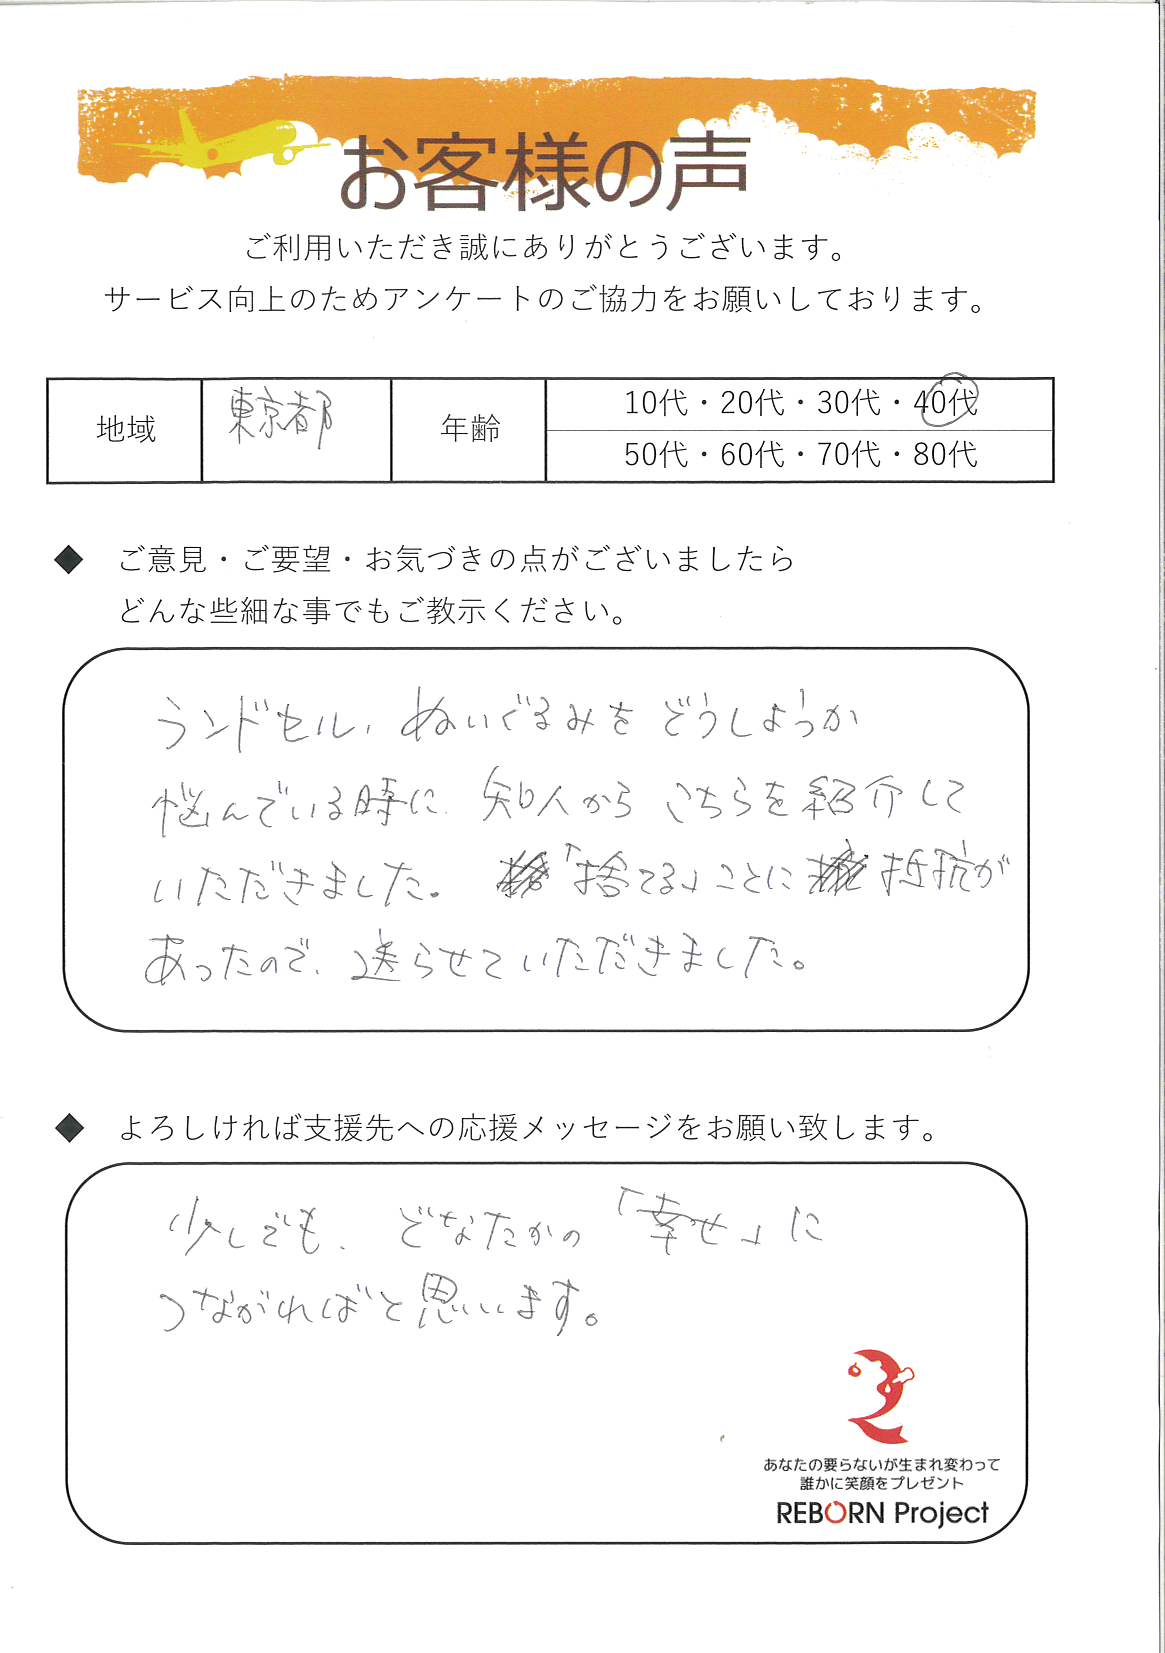 お客様の声
ご利用いただき誠にありがとうございます。
サービス向上のためアンケートのご協力をお願いしております。
地域 東京都 年齢 10代・20代・30代・40代
50代・60代・70代・80代
◆ ご意見・ご要望・お気づきの点がございましたら
どんな些細な事でもご教示ください。
ランドセル、ぬいぐるみをどうしようか
悩んでいる時に、知人からこちらを紹介して
いただきました。「捨てる」ことに抵抗が
あったので、送らせていただきました。
◆ よろしければ支援先への応援メッセージをお願い致します。
少しでも、どなたかの「幸せ」に
つながればと思います。
あなたの要らないが生まれ変わって
誰かに笑顔をプレゼント
REBORN Project